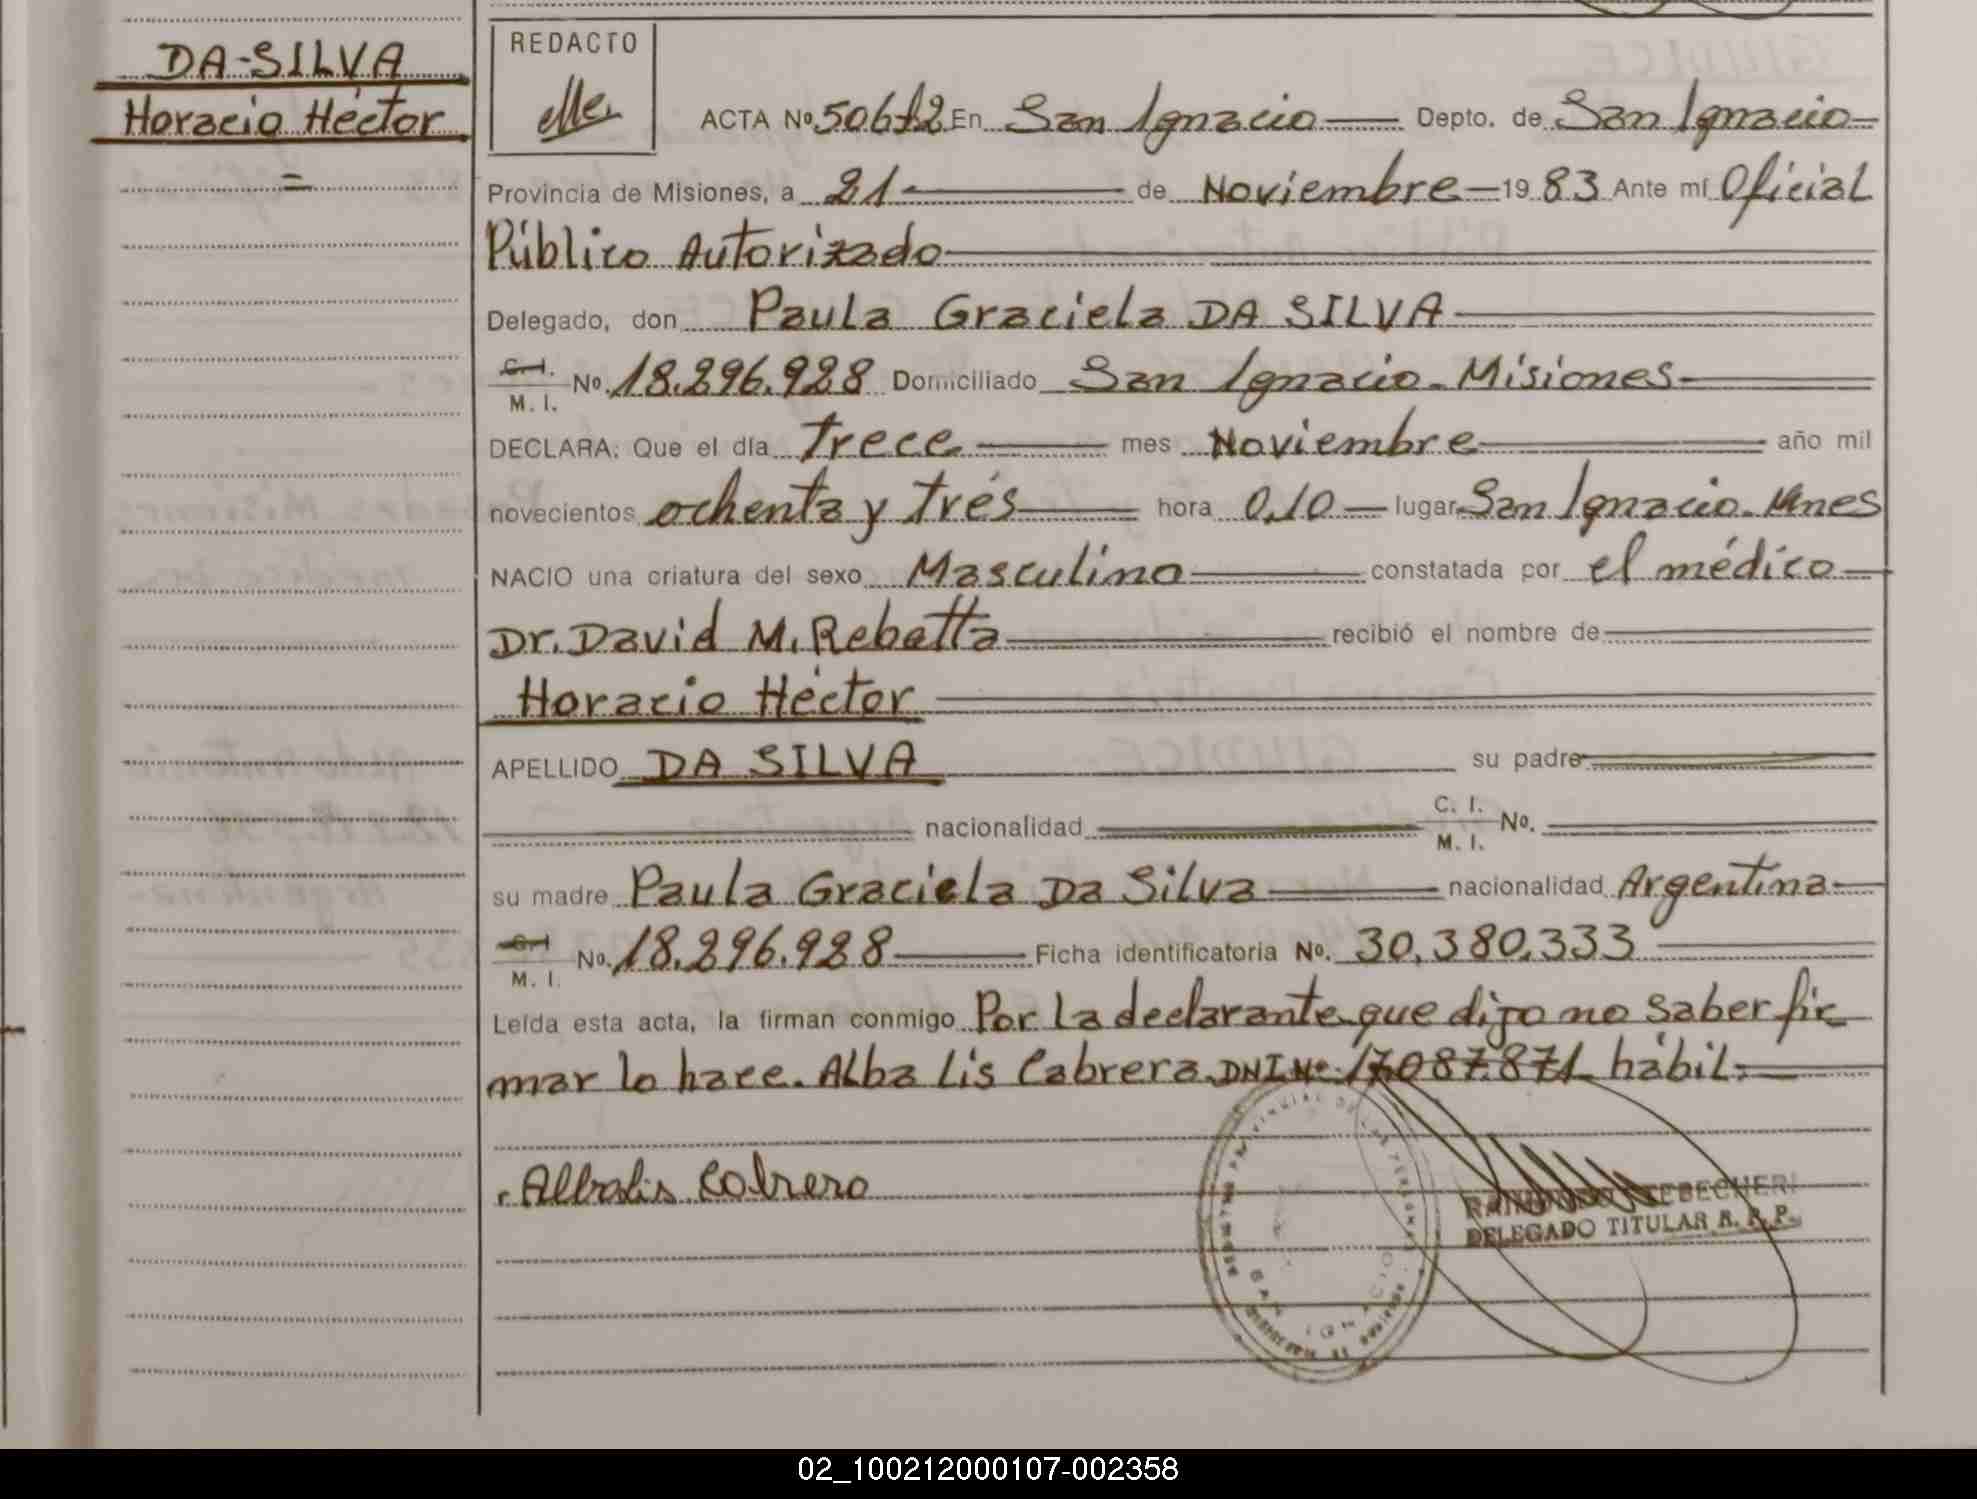 DA-SILVA
Horacio Héctor
=
REDACTO
ACTA Nº 506/2 En San Ignacio Depto. de San Ignacio
Provincia de Misiones, a 21 de Noviembre 1983 Ante mí Oficial
Público Autorizado
Delegado, don Paula Graciela DA SILVA
C. I.
M. I. No. 18.296.928 Domiciliado San Ignacio - Misiones
DECLARA: Que el día Trece mes Noviembre año mil
novecientos ochenta y trés hora 0,10 lugar San Ignacio. Mnes
NACIO una criatura del sexo Masculino constatada por el médico
Dr. David M. Rebatta recibió el nombre de
Horacio Héctor
APELLIDO DA SILVA su padre
nacionalidad C. I. M. I. No.
su madre Paula Graciela Da Silva nacionalidad Argentina
C. I.
M. I. No. 18.296.928 Ficha identificatoria No. 30.380.333
Leída esta acta, la firman conmigo Por La declarante que dijo no saber fir
mar lo hace. Alba Lis Cabrera. DNI Nº 17.087.871 hábil.
Albalis Cabrera
DELEGADO TITULAR R. P. P.
SAN IGNACIO
02_100212000107-002358